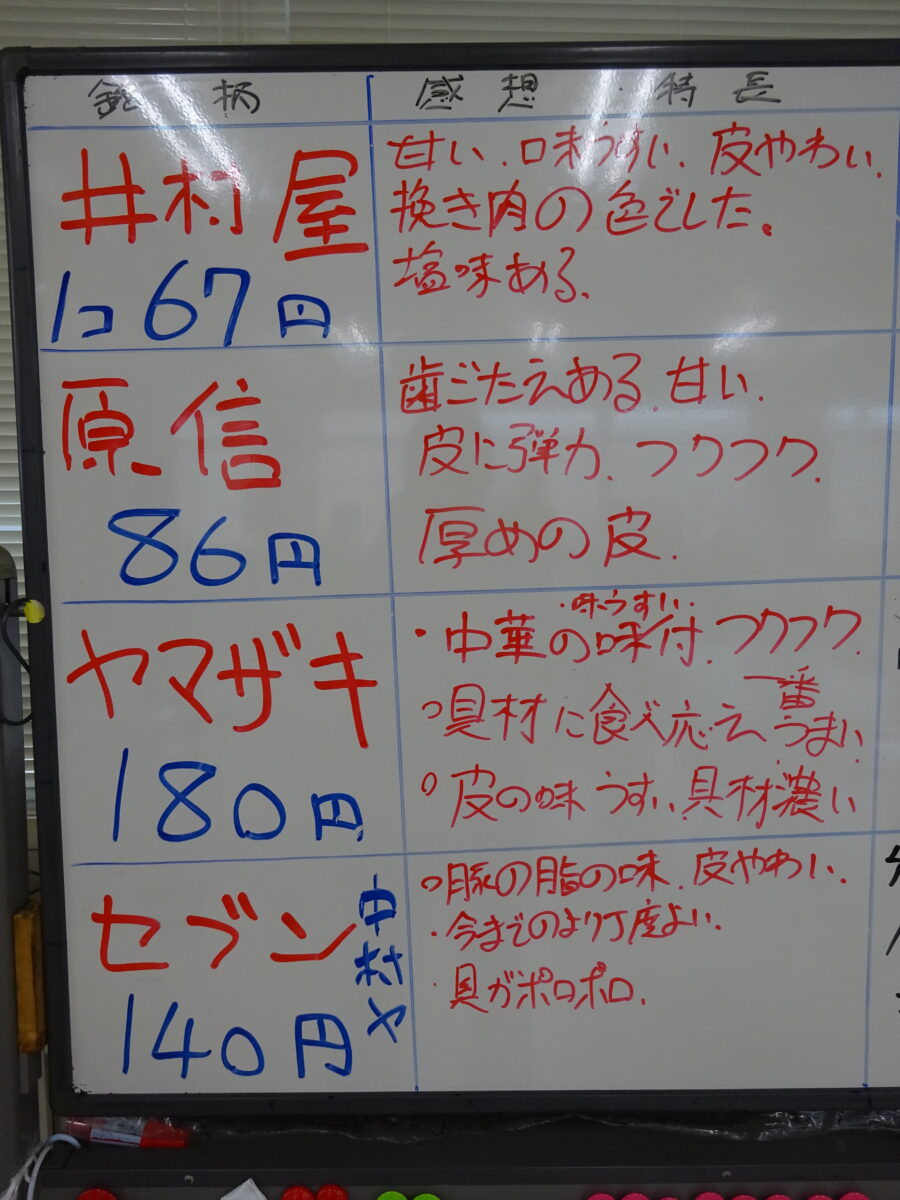 銘柄
感想・特長
井村屋
1コ67円
甘い、口味うすい、皮やわい、
挽き肉の色でした。
塩味ある。
原信
86円
歯ごたえある、甘い、
皮に弾力、フクフク、
厚めの皮、
ヤマザキ
180円
・味うすい・
・中華の味付、フクフク、
○具材に食べ応え一番うまい
○皮の味うすい、具材濃い
セブン
中村ヤ
140円
○豚の脂の味、皮やわい、
・今までのより丁度よい、
・具がポロポロ、